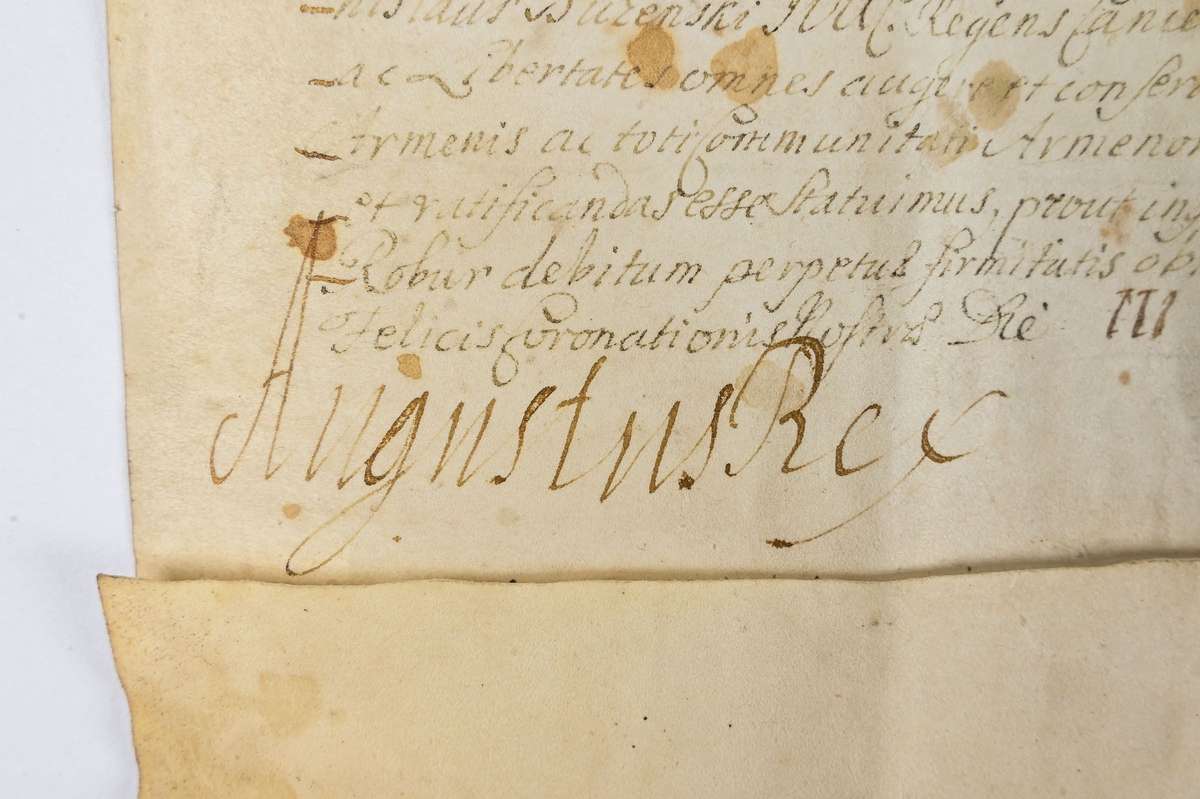 -nislaus Buzenski JUC. Regens Can
-ac Libertates omnes augere et conser
-Armenis ac toti Communitati Armenor
et ratificandas esse statuimus, prout in
Robur debitum perpetuæ firmitatis ob
Felicis Coronationis Nostræ Die III
Augustus Rex